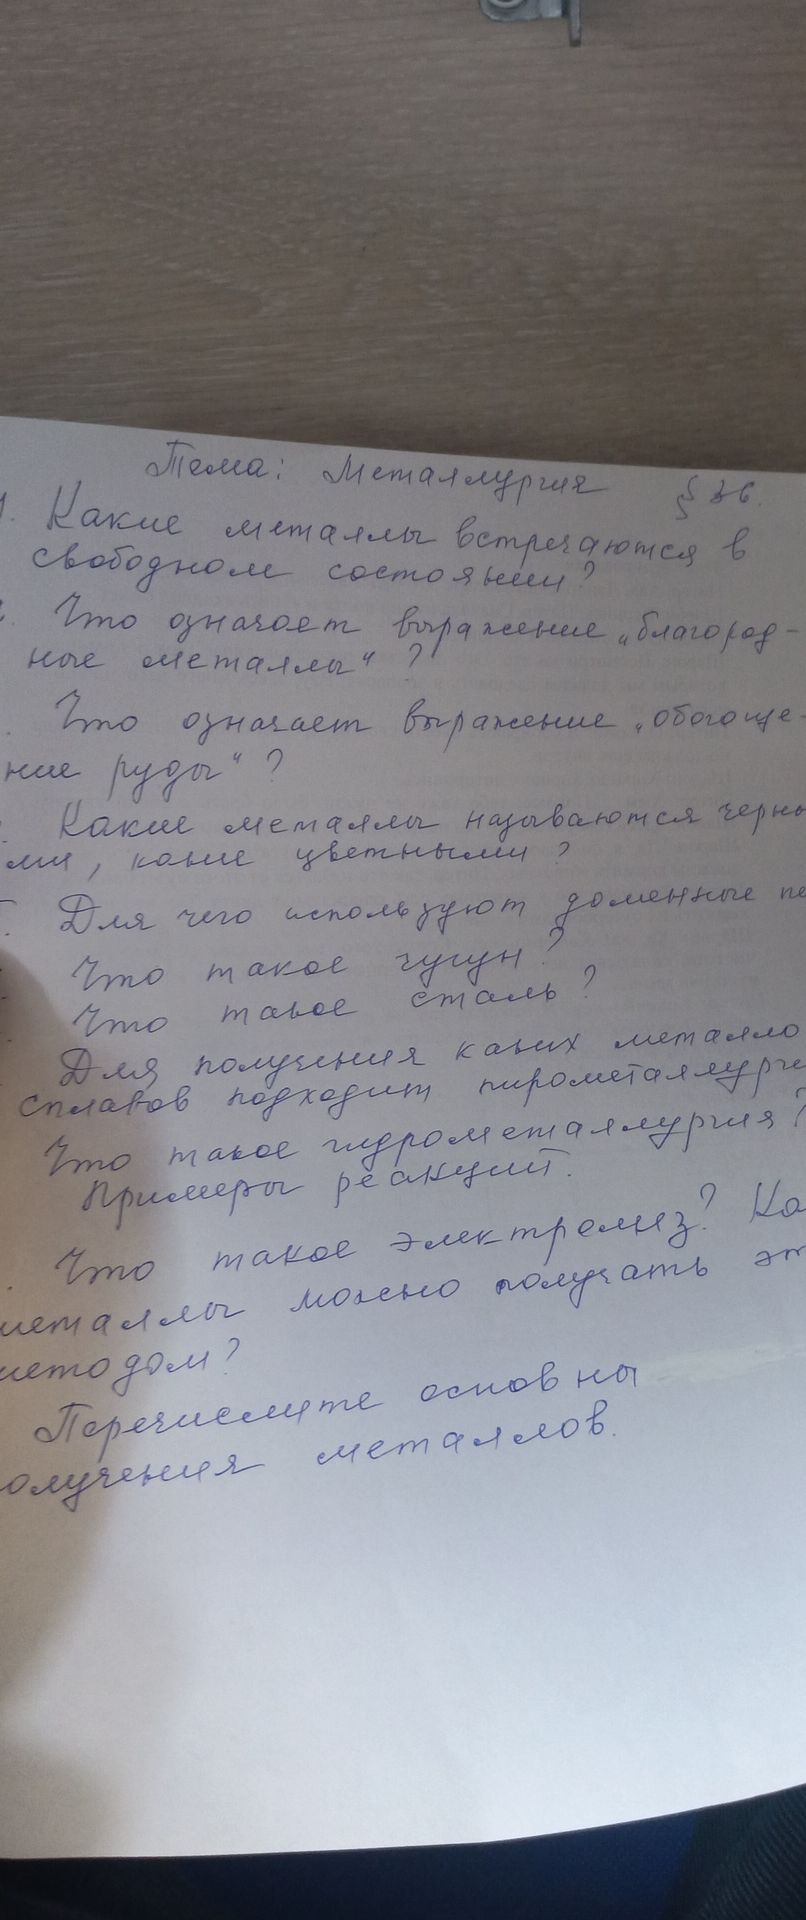 Тема: Металлургия § 36.
1. Какие металлы встречаются в
свободном состоянии?
Что означает выражение „благород-
ные металлы“?
Что означает выражение „обогоще-
ние руды“?
Какие металлы называются черны
ми, какие цветными?
Для чего используют доменные пе
Что такое чугун?
Что такое сталь?
Для получения каких металло
сплавов подходит пирометаллурги
Что такое гидрометаллургия?
Примеры реакций.
Что такое электролиз? Ка
металлы можно получать эт
методом?
Перечислите основны
олучения металлов.